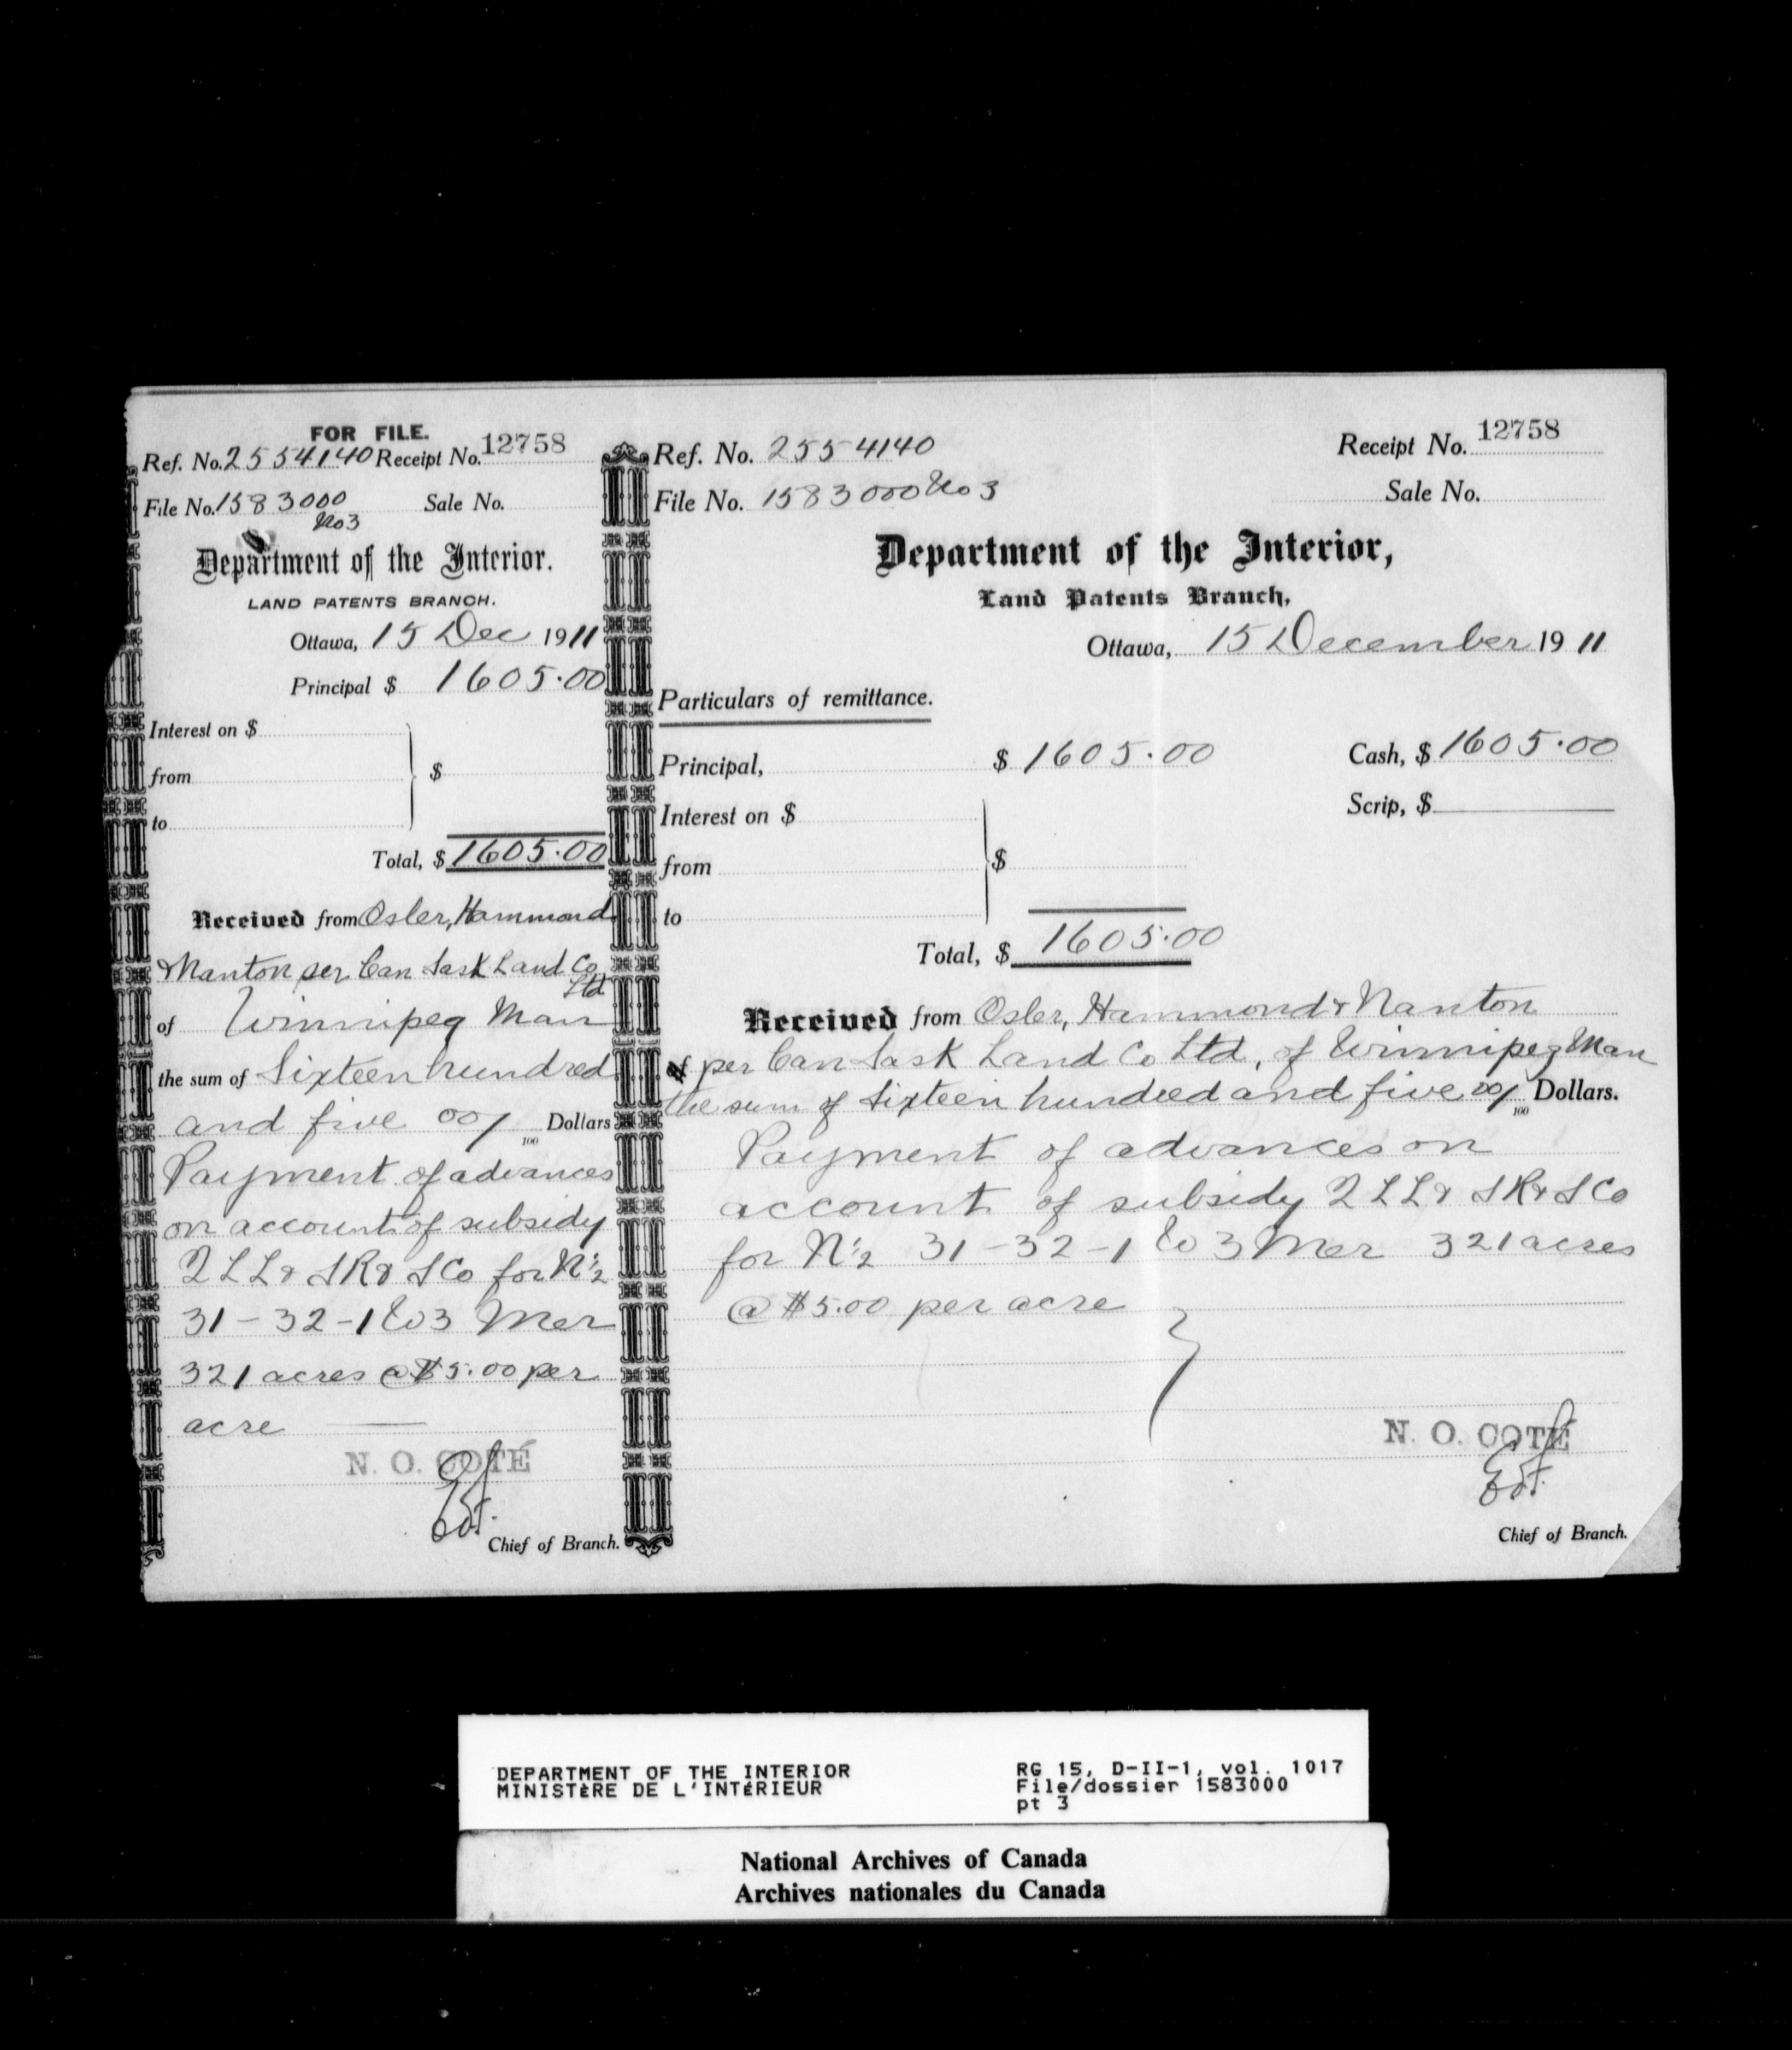 FOR FILE.
Ref. No. 2554140 Receipt No. 12758
File No. 1583000 Sale No.
No 3
Department of the Interior.
LAND PATENTS BRANCH.
Ottawa, 15 Dec 1911
Principal $ 1605.00
Interest on $
from $
to
Total, $ 1605.00
Received from Osler, Hammond
& Nanton per Can Sask Land Co
Ltd
of Winnipeg Man
the sum of Sixteen hundred
and five 00/100 Dollars
Payment of advances
on account of subsidy
Q L L & S R & S Co for N ½
31-32-1 W 3 Mer
321 acres @ $5.00 per
acre
N. O. COTÉ
Chief of Branch.
Ref. No. 2554140 Receipt No. 12758
File No. 1583000 No 3 Sale No.
Department of the Interior,
Land Patents Branch,
Ottawa, 15 December 1911
Particulars of remittance.
Principal, $ 1605.00 Cash, $ 1605.00
Interest on $ Scrip, $
from $
to
Total, $ 1605.00
Received from Osler, Hammond & Nanton
of per Can Sask Land Co Ltd, of Winnipeg Man
the sum of Sixteen hundred and five 00/100 Dollars.
Payment of advances on
account of subsidy Q L L & S R & S Co
for N ½ 31-32-1 W 3 Mer 321 acres
@ $5.00 per acre
N. O. COTÉ
Chief of Branch.
DEPARTMENT OF THE INTERIOR RG 15, D-II-1, vol. 1017
MINISTÈRE DE L'INTÉRIEUR File/dossier 1583000
pt 3
National Archives of Canada
Archives nationales du Canada